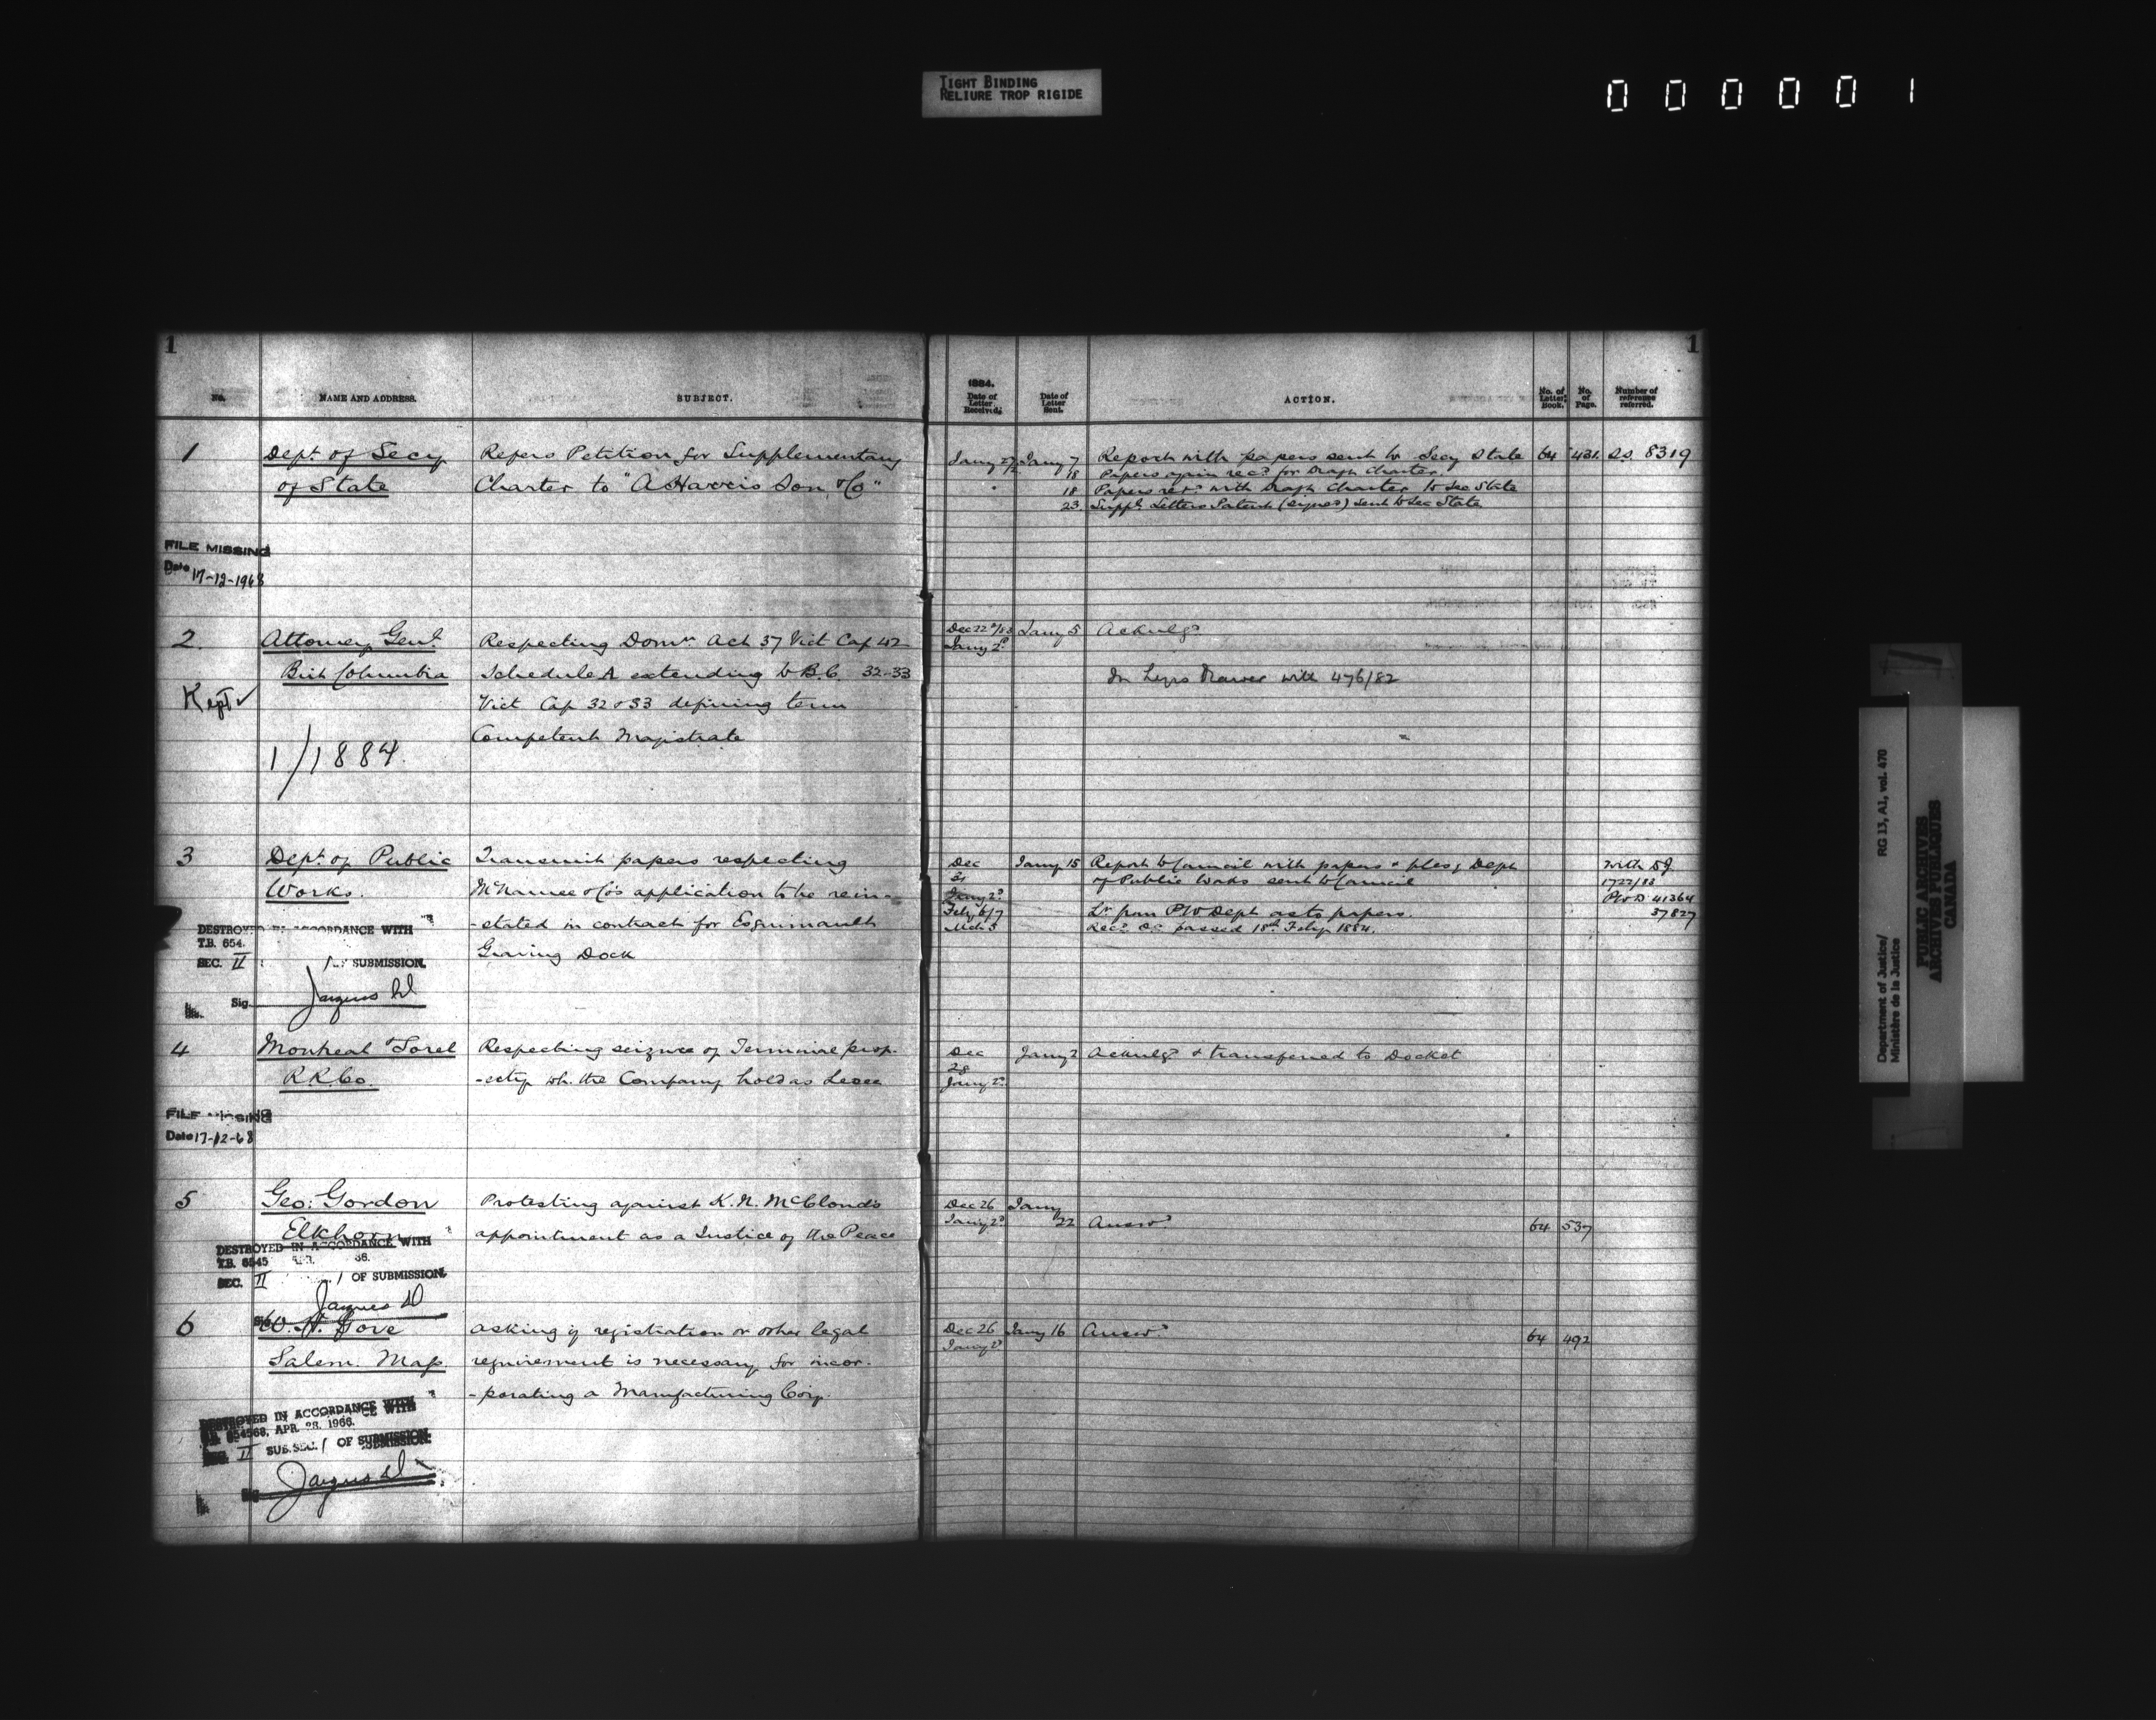 TIGHT BINDING
RELIURE TROP RIGIDE
000001
1
1
No.
NAME AND ADDRESS.
SUBJECT.
1884.
Date of Letter Received.
Date of Letter Sent.
ACTION.
No. of Letter Book.
No. of Page.
Number of reference referred.
1
Dept. of Secy
of State
Refers Petition for Supplementary
Charter to "A Harris Son & Co"
Jany 7 Report with papers sent to Secy State 64 431 S.S. 8319
18 Papers again recd for Draft Charter
18 Papers retd with Draft Charter to Sec State
23. Suppl. Letters Patent (signed) sent to Sec State
FILE MISSING
Date 17-12-1968
2.
Attorney Genl.
Brit Columbia
Respecting Domn. Act 37 Vict Cap 42
Schedule A extending to B.C. 32-33
Vict Cap 32 & 33 defining term
Competent Magistrate
Dec 22/83 Jany 5 Acknlgd
Jany 2d
In Legis Drawer with 476/82
Kept ✓
1/1884.
3
Dept. of Public
Works.
Transmit papers respecting
McNamee & Co's application to be rein-
-stated in contract for Esquimault
Graving Dock
Dec Jany 15 Report to Council with papers & Dept
31 of Public Works sent to Council
Jany 2d
Feby 6/7 Lr from PW Dept as to papers.
Mch 3 Recd OC passed 18th Feby 1884.
with
1722/83
PWD 41364
37827
DESTROYED IN ACCORDANCE WITH
T.B. 654
SEC. II SUBMISSION.
Sig.
4
Montreal & Sorel
RR Co.
Respecting seizure of Terminal prop-
-erty wh. the Company hold as Lessee
Dec Jany 2 Acknlgd & transferred to Docket
28
Jany 2d
FILE MISSING
Date 17-12-68
5
Geo: Gordon
Elkhorn
Protesting against K. N. McCloud's
appointment as a Justice of the Peace
Dec 26 Jany
Jany 2d 22 Answd 64 537
DESTROYED IN ACCORDANCE WITH
T.B. 6545
SEC. II OF SUBMISSION.
Sig.
6
W. H. Gove
Salem. Mass.
asking if registration or other legal
requirement is necessary for incor-
-porating a Manufacturing Corp.
Dec 26 Jany 16 Answd 64 492
Jany 2d
DESTROYED IN ACCORDANCE WITH
T.B. 654568, APR. 28, 1966.
SEC. II SUB.SEC. 1 OF SUBMISSION.
Sig.
Department of Justice/
Ministère de la Justice
RG 13, A1, vol. 470
PUBLIC ARCHIVES
ARCHIVES PUBLIQUES
CANADA